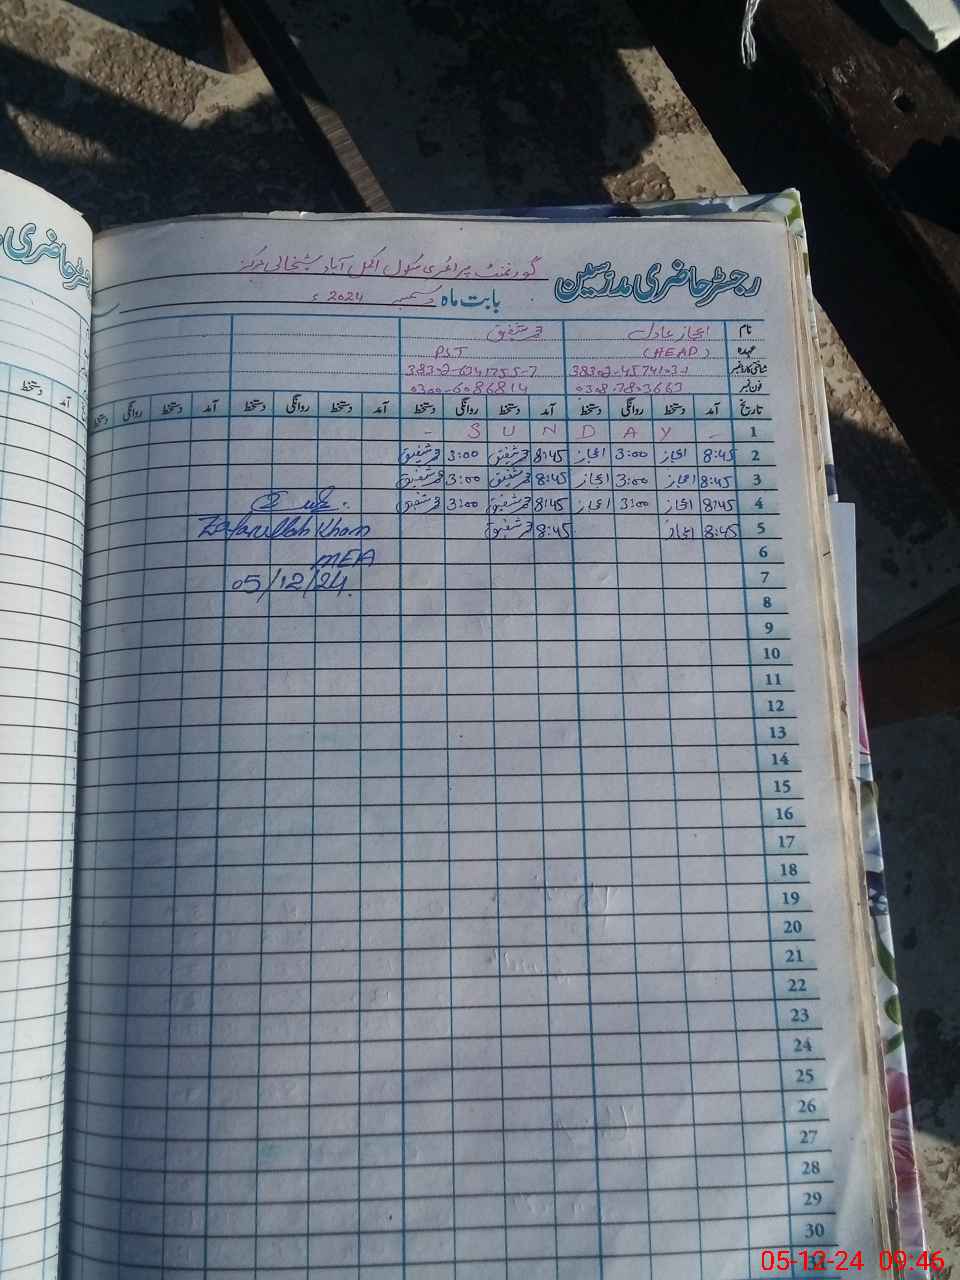 رجسٹر حاضری مدرسین
گورنمنٹ پرائمری سکول آباد
بابت ماہ دسمبر 2024ء
نام اعجاز عادل محمد شفیق
عہدہ (HEAD) PST
شناختی کارڈ نمبر 38302-6341755-7
فون نمبر 0308-7803663 0300-6086814
تاریخ آمد دستخط روانگی دستخط آمد دستخط روانگی دستخط آمد دستخط روانگی دستخط آمد دستخط روانگی
1 - S U N D A Y -
2 8:45 اعجاز 3:00 اعجاز 8:45 محمد شفیق 3:00 محمد شفیق
3 8:45 اعجاز 3:00 اعجاز 8:45 محمد شفیق 3:00 محمد شفیق
4 8:45 اعجاز 3:00 اعجاز 8:45 محمد شفیق 3:00 محمد شفیق
5 8:45 اعجاز 8:45 محمد شفیق
Zafarullah Khan
6
MEA
7
05/12/24.
8
9
10
11
12
13
14
15
16
17
18
19
20
21
22
23
24
25
26
27
28
29
30
05-12-24 09:46